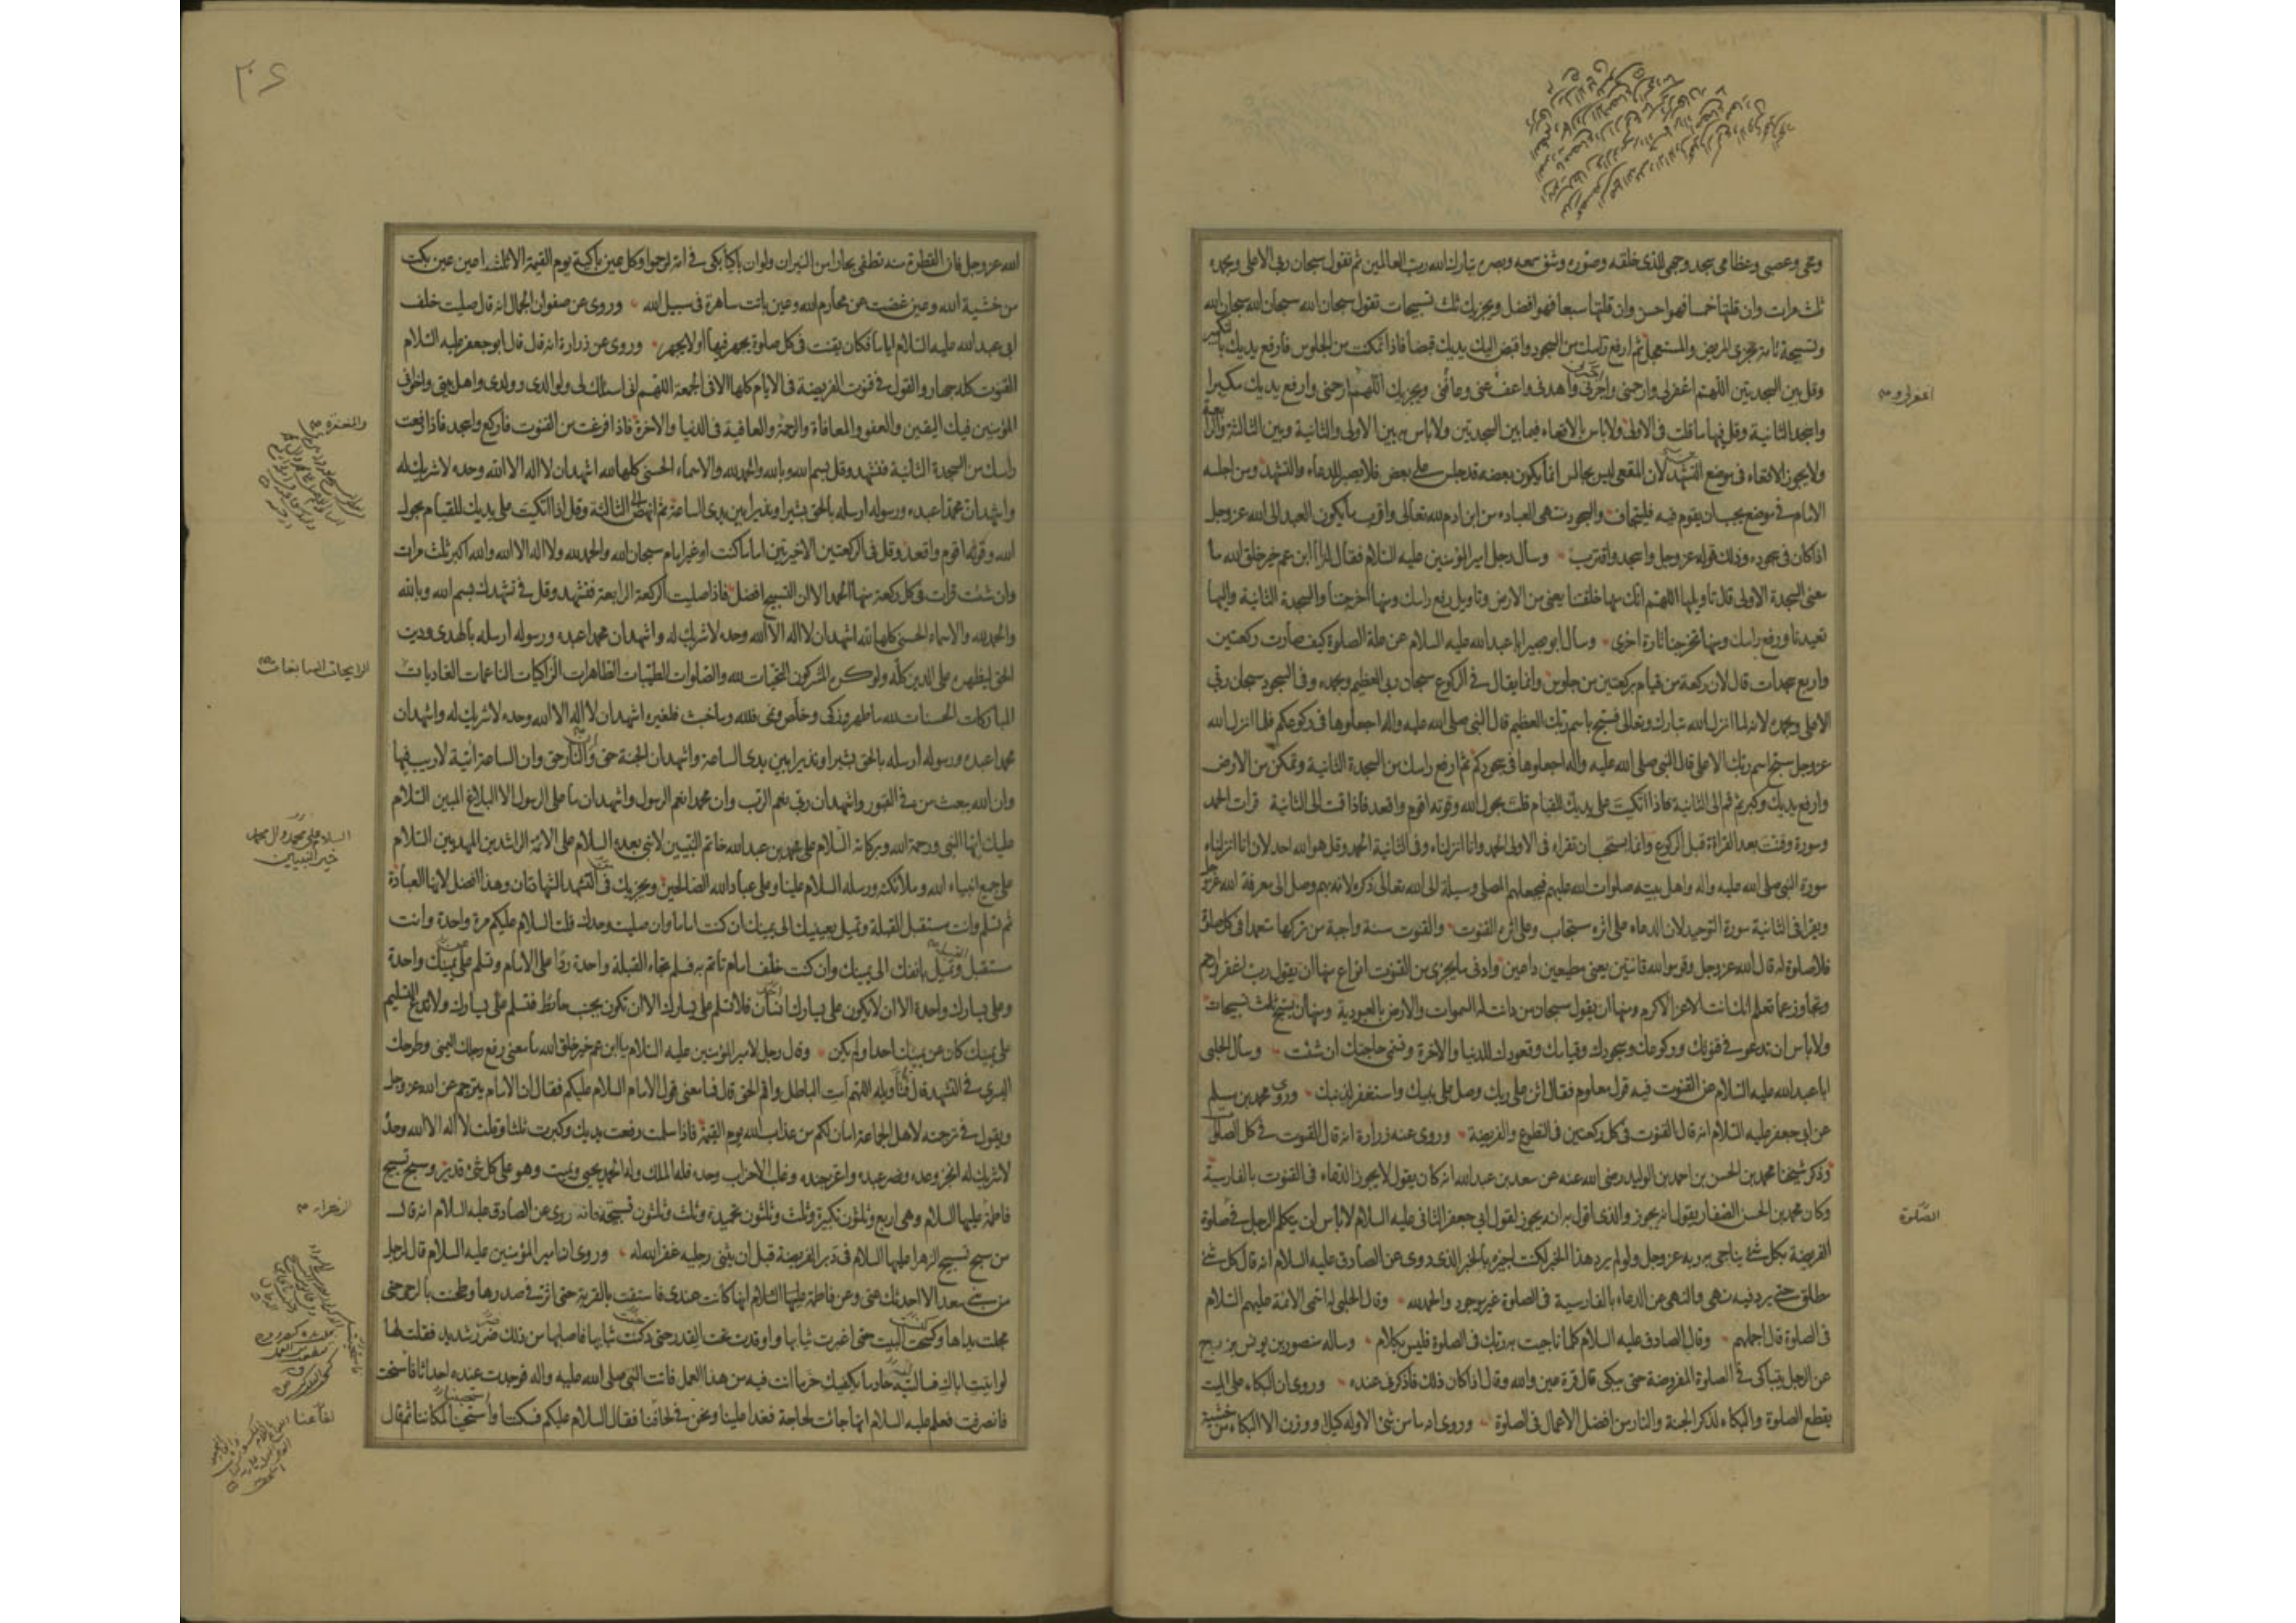 ومخي وعصبي وعظامي سجد وجهي للذي خلقه وصوره وشق سمعه وبصره تبارك الله رب العالمين ثم تقول سبحان ربي الاعلى وبحمده
ثلث مرات وان قلتها خمسا فهو احسن وان قلتها سبعا فهو افضل ويجزيك ثلث تسبيحات تقول سبحان الله سبحان الله سبحان الله
وتسبيحة تامة تجزى للمريض والمستعجل ثم ارفع راسك من السجود واقبض اليك يديك قبضا فاذا تمكنت من الجلوس فارفع يديك بالتكبير
وقل بين السجدتين اللهم اغفرلي وارحمني واجرني واهدني واعف عني وعافني ويجزيك اللهم ارحمني وارفع يديك مكبرا
اغفرلي و
واسجد الثانية وقل فيها ما قلت في الاولى ولا باس بالاقعاء فيما بين السجدتين ولا باس به بين الاولى والثانية وبين الثالثة والرابعة
ولا يجوز الاقعاء في موضع التشهد لان المقعي ليس بجالس انما يكون بعضه قد جلس على بعض فلا يصبر للدعاء والتشهد ومن اجلسه
الامام في موضع يجب ان يقوم فيه فليتجاف والسجود منتهى العباده من ابن ادم لله تعالى واقرب ما يكون العبد الى الله عز وجل
اذا كان في سجوده وذلك قوله عز وجل واسجد واقترب وسأل رجل امير المؤمنين عليه السلام فقال له يا ابن عم خير خلق الله ما
معنى السجدة الاولى قال تاويلها اللهم انك منها خلقتنا يعني من الارض وتاويل رفع راسك ومنها اخرجتنا والسجدة الثانية واليها
تعيدنا ورفع راسك ومنها تخرجنا تارة اخرى وسال ابو بصير ابا عبد الله عليه السلام عن علة الصلوة كيف صارت ركعتين
واربع سجدات قال لان ركعة من قيام بركعتين من جلوس وانما يقال في الركوع سبحان ربي العظيم وبحمده وفي السجود سبحان ربي
الاعلى وبحمده لانه لما انزل الله تبارك وتعالى فسبح باسم ربك العظيم قال النبي صلى الله عليه واله اجعلوها في ركوعكم فلما انزل الله
عز وجل سبح اسم ربك الاعلى قال النبي صلى الله عليه واله اجعلوها في سجودكم ثم ارفع راسك من السجدة الثانية وتمكن من الارض
وارفع يديك وكبر ثم قم الى الثانية فاذا اتكيت على يديك للقيام قلت بحول الله وقوته اقوم واقعد فاذا قمت الى الثانية قرات الحمد
وسورة وقنت بعد القراءة قبل الركوع وانما يستحب ان تقراء في الاولى الحمد وانا انزلناه وفي الثانية الحمد وقل هو الله احد لان انا انزلناه
سورة النبي صلى الله عليه واله واهل بيته صلوات الله عليهم فيجعلهم المصلي وسيلة الى الله تعالى ذكره لانه بهم وصل الى معرفة الله عز وجل
ويقرا في الثانية سورة التوحيد لان الدعاء على اثره مستجاب وعلى اثره القنوت والقنوت سنة واجبة من تركها متعمدا في كل صلوة
فلا صلوة له قال الله عز وجل وقوموا لله قانتين يعني مطيعين داعين وادنى ما يجزى من القنوت انواع منها ان يقول رب اغفر وارحم
وتجاوز عما تعلم انك انت الاعز الاكرم ومنها ان يقول سبحان من دانت له السموات والارض بالعبودية ومنها ان يسبح ثلث تسبيحات
ولا باس ان تدعو في قنوتك وركوعك وسجودك وقيامك وقعودك للدنيا والاخرة وتسمي حاجتك ان شئت وسأل الحلبي
ابا عبد الله عليه السلام عن القنوت فيه قول معلوم فقال اثن على ربك وصل على نبيك واستغفر لذنبك وروى محمد بن مسلم
عن ابي جعفر عليه السلام انه قال القنوت في كل ركعتين في التطوع والفريضة وروى عنه زرارة انه قال القنوت في كل الصلوات
وذكر شيخنا محمد بن الحسن بن احمد بن الوليد رضي الله عنه عن سعد بن عبد الله انه كان يقول لا يجوز الدعاء في القنوت بالفارسية
وكان محمد بن الحسن الصفار يقول انه يجوز والذي اقول به انه يجوز لقول ابي جعفر الثاني عليه السلام لا باس ان يتكلم الرجل في صلوة
الصلوة
الفريضة بكل شئ يناجي به ربه عز وجل ولو لم يرد هذا الخبر لكنت اجيزه بالخبر الذي روى عن الصادق عليه السلام انه قال كل شئ
مطلق حتى يرد فيه نهي والنهي عن الدعاء بالفارسية في الصلوة غير موجود والحمد لله وقال الحلبي له اسمي الائمة عليهم السلام
في الصلوة قال اجملهم وقال الصادق عليه السلام كلما ناجيت به ربك في الصلوة فليس بكلام وساله منصور بن يونس بزرج
عن الرجل يتباكى في الصلوة المفروضة حتى يبكى قال قرة عين والله وقال اذا كان ذلك فاذكرني عنده وروى ان البكاء على الميت
يقطع الصلوة والبكاء لذكر الجنة والنار من افضل الاعمال في الصلوة وروى انه ما من شئ الا وله كيل ووزن الا البكاء من خشية
۲۰۶
الله عز وجل فان القطرة منه تطفي بحارا من النيران ولو ان باكيا بكى في امة لرحموا وكل عين باكية يوم القيمة الا ثلث اعين عين بكت
من خشية الله وعين غضت عن محارم الله وعين باتت ساهرة في سبيل الله وروى عن صفوان الجمال انه قال صليت خلف
ابي عبد الله عليه السلام اياما فكان يقنت في كل صلوة يجهر فيها او لا يجهر وروى عن زرارة انه قال قال ابو جعفر عليه السلام
القنوت كله جهار والقول في قنوت الفريضة في الايام كلها الا في الجمعة اللهم اني اسئلك لي ولوالدي وولدي واهل بيتي واخواني
المؤمنين فيك اليقين والعفو والمعافاة والرحمة والعافية في الدنيا والاخرة فاذا فرغت من القنوت فاركع واسجد فاذا رفعت
والمغفرة
راسك من السجدة الثانية فتشهد وقل بسم الله وبالله والحمد لله والاسماء الحسنى كلها لله اشهد ان لا اله الا الله وحده لا شريك له
واشهد ان محمدا عبده ورسوله ارسله بالحق بشيرا ونذيرا بين يدي الساعة ثم انهض الى الثالثة وقل اذا اتكيت على يديك للقيام بحول
الله وقوته اقوم واقعد وقل في الركعتين الاخيرتين اماما كنت او غير امام سبحان الله والحمد لله ولا اله الا الله والله اكبر ثلث مرات
وان شئت قرات في كل ركعة منها الحمد الا ان التسبيح افضل فاذا صليت الركعة الرابعة فتشهد وقل في تشهدك بسم الله وبالله
والحمد لله والاسماء الحسنى كلها لله اشهد ان لا اله الا الله وحده لا شريك له واشهد ان محمدا عبده ورسوله ارسله بالهدى ودين
الحق ليظهره على الدين كله ولو كره المشركون التحيات لله والصلوات الطيبات الطاهرات الزاكيات الناعمات الغاديات
الرايحات السابغات
المباركات الحسنات لله ما طهر وزكى وخلص ونمى فلله وما خبث فلغيره اشهد ان لا اله الا الله وحده لا شريك له واشهد ان
محمدا عبده ورسوله ارسله بالحق بشيرا ونذيرا بين يدي الساعة واشهد ان الجنة حق وان النار حق وان الساعة اتية لا ريب فيها
وان الله يبعث من في القبور واشهد ان ربي نعم الرب وان محمدا نعم الرسول واشهد ان ما على الرسول الا البلاغ المبين السلام
عليك ايها النبي ورحمة الله وبركاته السلام على محمد بن عبد الله خاتم النبيين لا نبي بعده السلام على الائمة الراشدين المهديين السلام
السلام على محمد وال محمد
خير النبيين
على جميع انبياء الله وملائكته ورسله السلام علينا وعلى عباد الله الصالحين ويجزيك في التشهد الشهادتان وهذا افضل لانها العبادة
ثم تسلم وانت مستقبل القبلة وتميل بعينيك الى يمينك ان كنت اماما وان صليت وحدك قلت السلام عليكم مرة واحدة وانت
مستقبل القبلة وتميل بانفك الى يمينك وان كنت خلف امام تاتم به فسلم تجاه القبلة واحدة ردا على الامام وتسلم على يمينك واحدة
وعلى يسارك واحدة الا ان لا يكون على يسارك انسان فلا تسلم على يسارك الا ان تكون بجنب حائط فتسلم على يسارك ولا تدع التسليم
على يمينك كان عن يمينك احد او لم يكن وقال رجل لامير المؤمنين عليه السلام يا ابن عم خير خلق الله ما معنى رفع رجلك اليمنى وطرحك
اليسرى في التشهد قال تاويله اللهم امت الباطل واقم الحق قال فما معنى قول الامام السلام عليكم فقال ان الامام يترجم عن الله عز وجل
ويقول في ترجمته لاهل الجماعة امان لكم من عذاب الله يوم القيمة فاذا سلمت رفعت يديك وكبرت ثلثا وقلت لا اله الا الله وحده
لا شريك له انجز وعده ونصر عبده واعز جنده وغلب الاحزاب وحده فله الملك وله الحمد يحيي ويميت وهو على كل شئ قدير وسبح تسبيح
فاطمة عليها السلام وهي اربع وثلثون تكبيرة وثلث وثلثون تحميدة وثلث وثلثون تسبيحة فانه روى عن الصادق عليه السلام انه قال
الزهراء
من سبح تسبيح الزهرا عليها السلام في دبر الفريضة قبل ان يثني رجليه غفر الله له وروى ان امير المؤمنين عليه السلام قال لرجل
من بني سعد الا احدثك عني وعن فاطمة عليها السلام انها كانت عندي فاستقت بالقربة حتى اثر في صدرها وطحنت بالرحى حتى
مجلت يداها وكسحت البيت حتى اغبرت ثيابها واوقدت تحت القدر حتى دكنت ثيابها فاصابها من ذلك ضرر شديد فقلت لها
لو اتيت اباك فسالتيه خادما يكفيك حر ما انت فيه من هذا العمل فاتت النبي صلى الله عليه واله فوجدت عنده احداثا فاستحت
فانصرفت فعلم عليه السلام انها جائت لحاجة فغدا علينا ونحن في لحافنا فقال السلام عليكم فسكتنا واستحينا لمكاننا ثم قال
لفاعنا